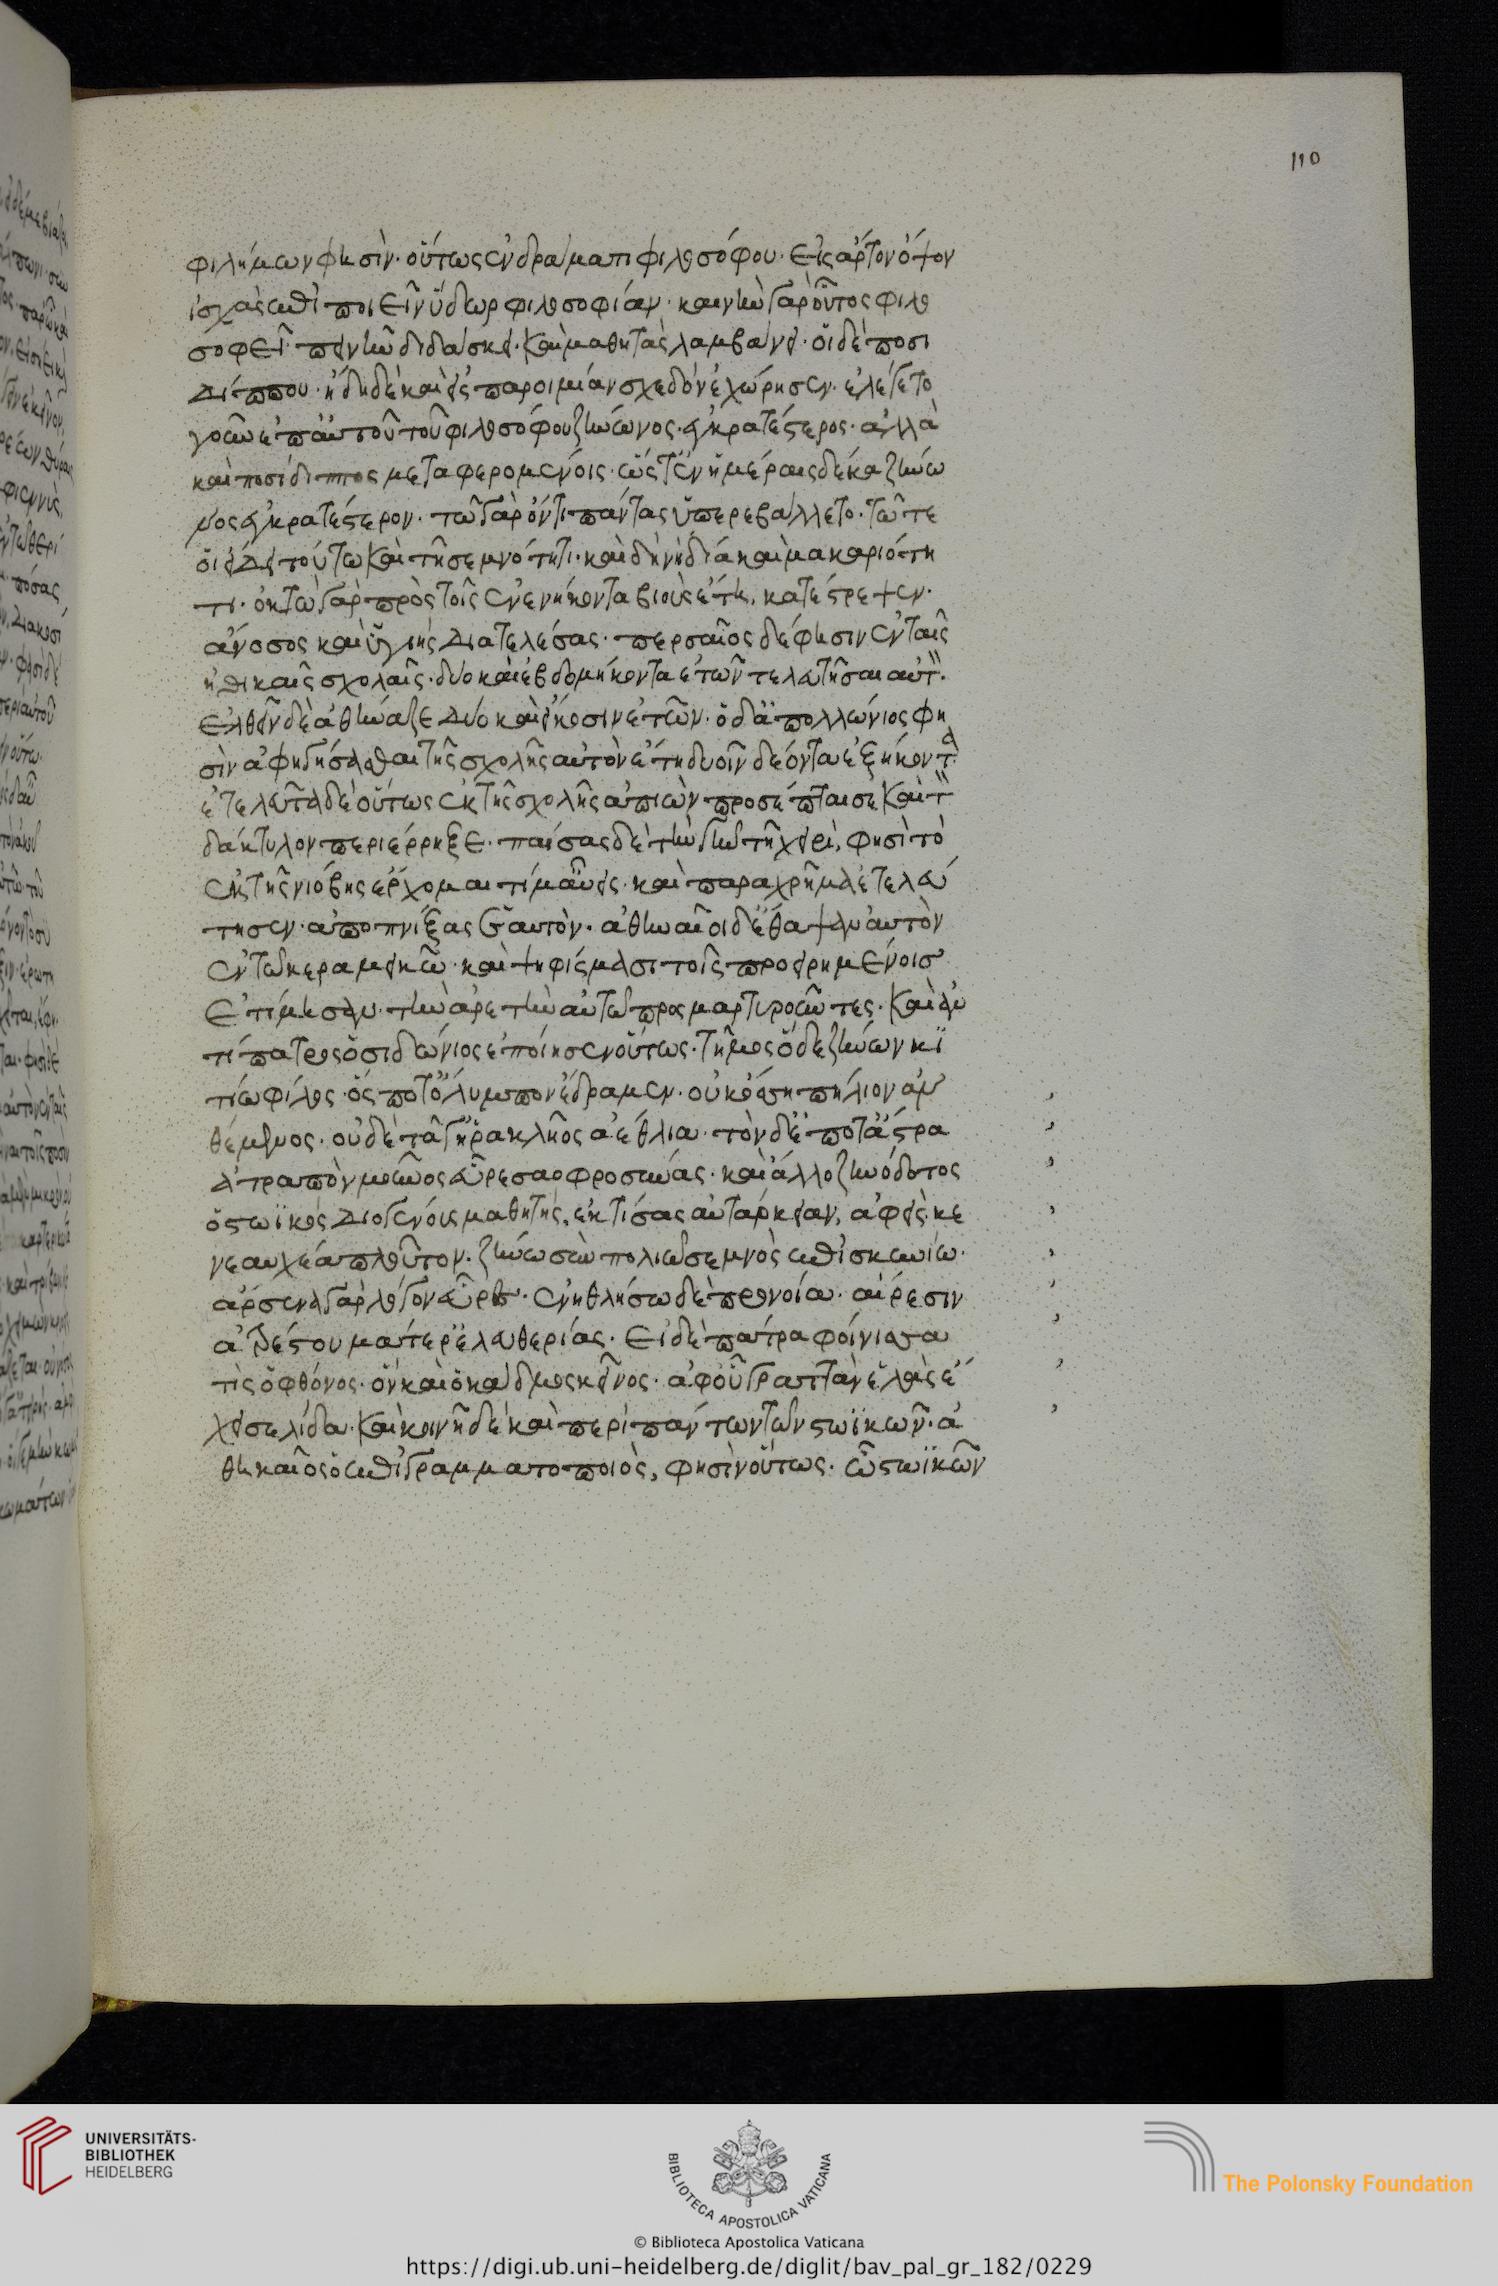 110
φιλήμων φησὶν· οὕτως ἐν δράματι φιλοσόφου· εἷς ἄρτον ὄψον
ἰσχὰς ἐπιπιεῖν ὕδωρ φιλοσοφίαν· καινὴν γὰρ οὗτος φιλο
σοφεῖ· πεινῆν διδάσκει· καὶ μαθητὰς λαμβάνει· οἱ δὲ ποσι
δίππου· ἤδη δὲ καὶ εἰς παροιμίαν σχεδὸν ἐχώρησεν· ἐλέγετο
γοῦν ἐπ' αὐτοῦ τοῦ φιλοσόφου ζήνωνος ἐγκρατέστερος· ἀλλὰ
καὶ ποσίδιππος μεταφερομένοις· ὥστ' ἐν ἡμέραις δέκα ζήνω
νος ἐγκρατέστερον· τῶ γὰρ ὄντι πάντας ὑπερεβάλλετο· τῶ τε
εἴδει τούτω καὶ τῆ σεμνότητι· καὶ δὴ νὴ δία καὶ μακαριότη
τι· ὀκτὼ γὰρ πρὸς τοῖς ἐνενήκοντα βιοὺς ἔτη, κατέστρεψεν·
ἄνοσος καὶ ὑγιὴς διατελέσας· περσαῖος δέ φησιν ἐν ταῖς
ἠθικαῖς σχολαῖς· δύο καὶ ἑβδομήκοντα ἐτῶν τελευτῆσαι αὐτ·
ἐλθεῖν δὲ ἀθήναζε δύο καὶ εἴκοσιν ἐτῶν· ὁ δ' ἀπολλώνιος φη
σὶν ἀφηγήσασθαι τῆς σχολῆς αὐτὸν ἔτη δυοῖν δέοντα ἑξήκοντα
ἐτελεύτα δὲ οὕτως ἐκ τῆς σχολῆς ἀπιὼν προσέπταισε καὶ τ
δάκτυλον περιέρρηξε· παίσας δὲ τὴν γῆν τῆ χειρὶ, φησὶ τὸ
ἐκ τῆς νιόβης ἔρχομαι τί μ' αὔεις· καὶ παραχρῆμα ἐτελεύ
τησεν· ἀποπνίξας ἑαυτὸν· ἀθηναῖοι δ' ἔθαψαν αὐτὸν
ἐν τῶ κεραμεικῶ· καὶ ψηφίσμασι τοῖς προειρημένοις
ἐτίμησαν· τὴν ἀρετὴν αὐτῶ προσμαρτυροῦντες· καὶ ἀν
τίπατρος ὁ σιδώνιος ἐποίησεν οὕτως· τῆνος ὅδε ζήνων κι
τίω φίλος· ὅς ποτ' ὄλυμπον ἔδραμεν· οὐκ ὄσση πήλιον ἀν
θέμενος· οὐδὲ τά γ' ἡρακλῆος ἀέθλια· τὸν δέ ποτ' ἄστρα
ἀτραπὸν μούνος εὗρε σαοφροσύνας· καὶ ἄλλο ζηνόδοτος
ὁ στωϊκὸς διογένους μαθητής, ἔκτισας αὐτάρκειαν, ἀφεὶς κε
νεαυχέα πλοῦτον· ζήνων σὺν πολιῶ σεμνὸς ἐπισκυνίω·
ἄρσενα γὰρ λόγον εὗρες· ἐνηθλήσω δὲ προνοία· αἵρεσιν
ἀτρέστου ματέρ' ἐλευθερίας· εἰ δὲ πάτρα φοίνισσα
τὶς ὁ φθόνος· ὃν καὶ ὁ κάδμος κεῖνος· ἀφ' οὗ γραπτὰν ἑλλὰς ἔ
χει σελίδα· καὶ κοινῆ δὲ καὶ περὶ πάντων τῶν στωϊκῶν· ἀ
θηναῖος ὁ ἐπιγραμματοποιὸς, φησὶν οὕτως· ὦ στωϊκῶν
UNIVERSITÄTS-
BIBLIOTHEK
HEIDELBERG
BIBLIOTECA APOSTOLICA VATICANA
© Biblioteca Apostolica Vaticana
The Polonsky Foundation
https://digi.ub.uni-heidelberg.de/diglit/bav_pal_gr_182/0229